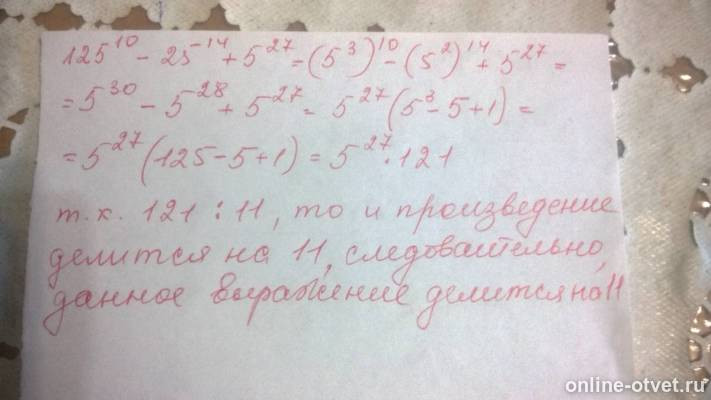 125¹⁰ - 25⁻¹⁴ + 5²⁷ = (5³)¹⁰ - (5²)¹⁴ + 5²⁷ =
= 5³⁰ - 5²⁸ + 5²⁷ = 5²⁷(5³ - 5 + 1) =
= 5²⁷(125 - 5 + 1) = 5²⁷ · 121
т.к. 121 : 11, то и произведение
делится на 11, следовательно,
данное выражение делится на 11
online-otvet.ru